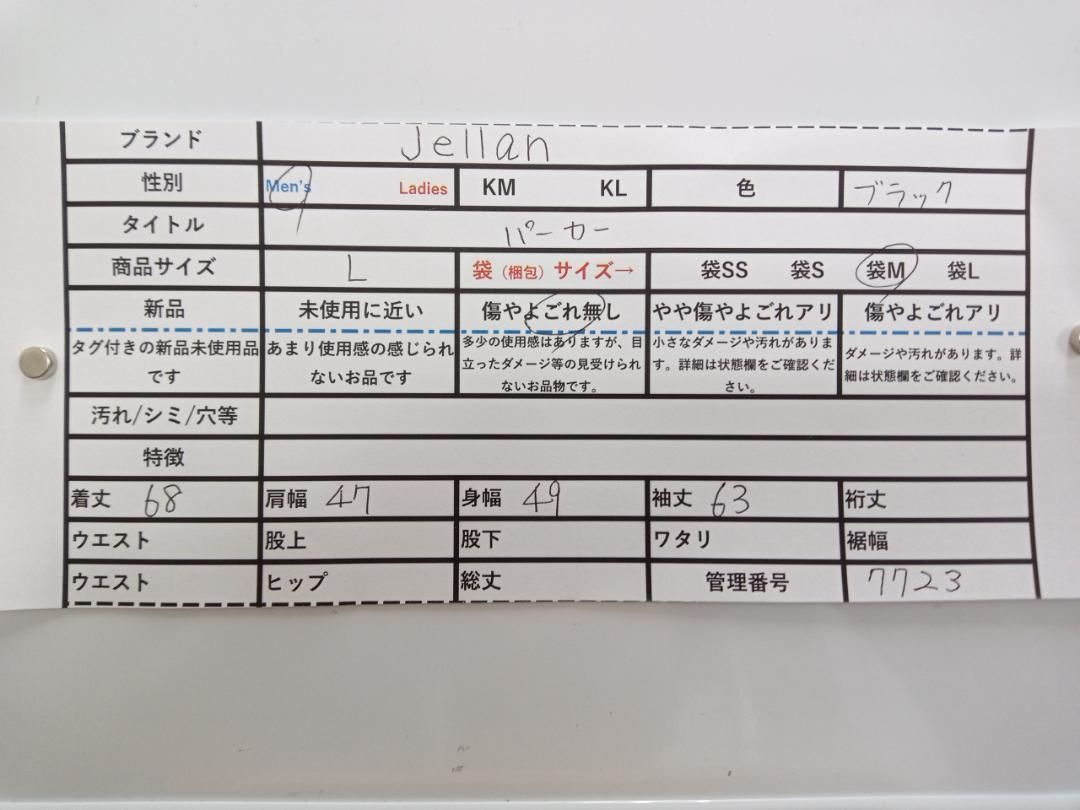 ブランド Jellan
性別 Men's Ladies KM KL 色 ブラック
タイトル パーカー
商品サイズ L 袋（梱包）サイズ→ 袋SS 袋S 袋M 袋L
新品 未使用に近い 傷やよごれ無し やや傷やよごれアリ 傷やよごれアリ
タグ付きの新品未使用品
です
あまり使用感の感じられ
ないお品です
多少の使用感はありますが、目
立ったダメージ等の見受けられ
ないお品物です。
小さなダメージや汚れがありま
す。詳細は状態欄をご確認くだ
さい。
ダメージや汚れがあります。詳
細は状態欄をご確認ください。
汚れ/シミ/穴等
特徴
着丈 68 肩幅 47 身幅 49 袖丈 63 裄丈
ウエスト 股上 股下 ワタリ 裾幅
ウエスト ヒップ 総丈 管理番号 7723